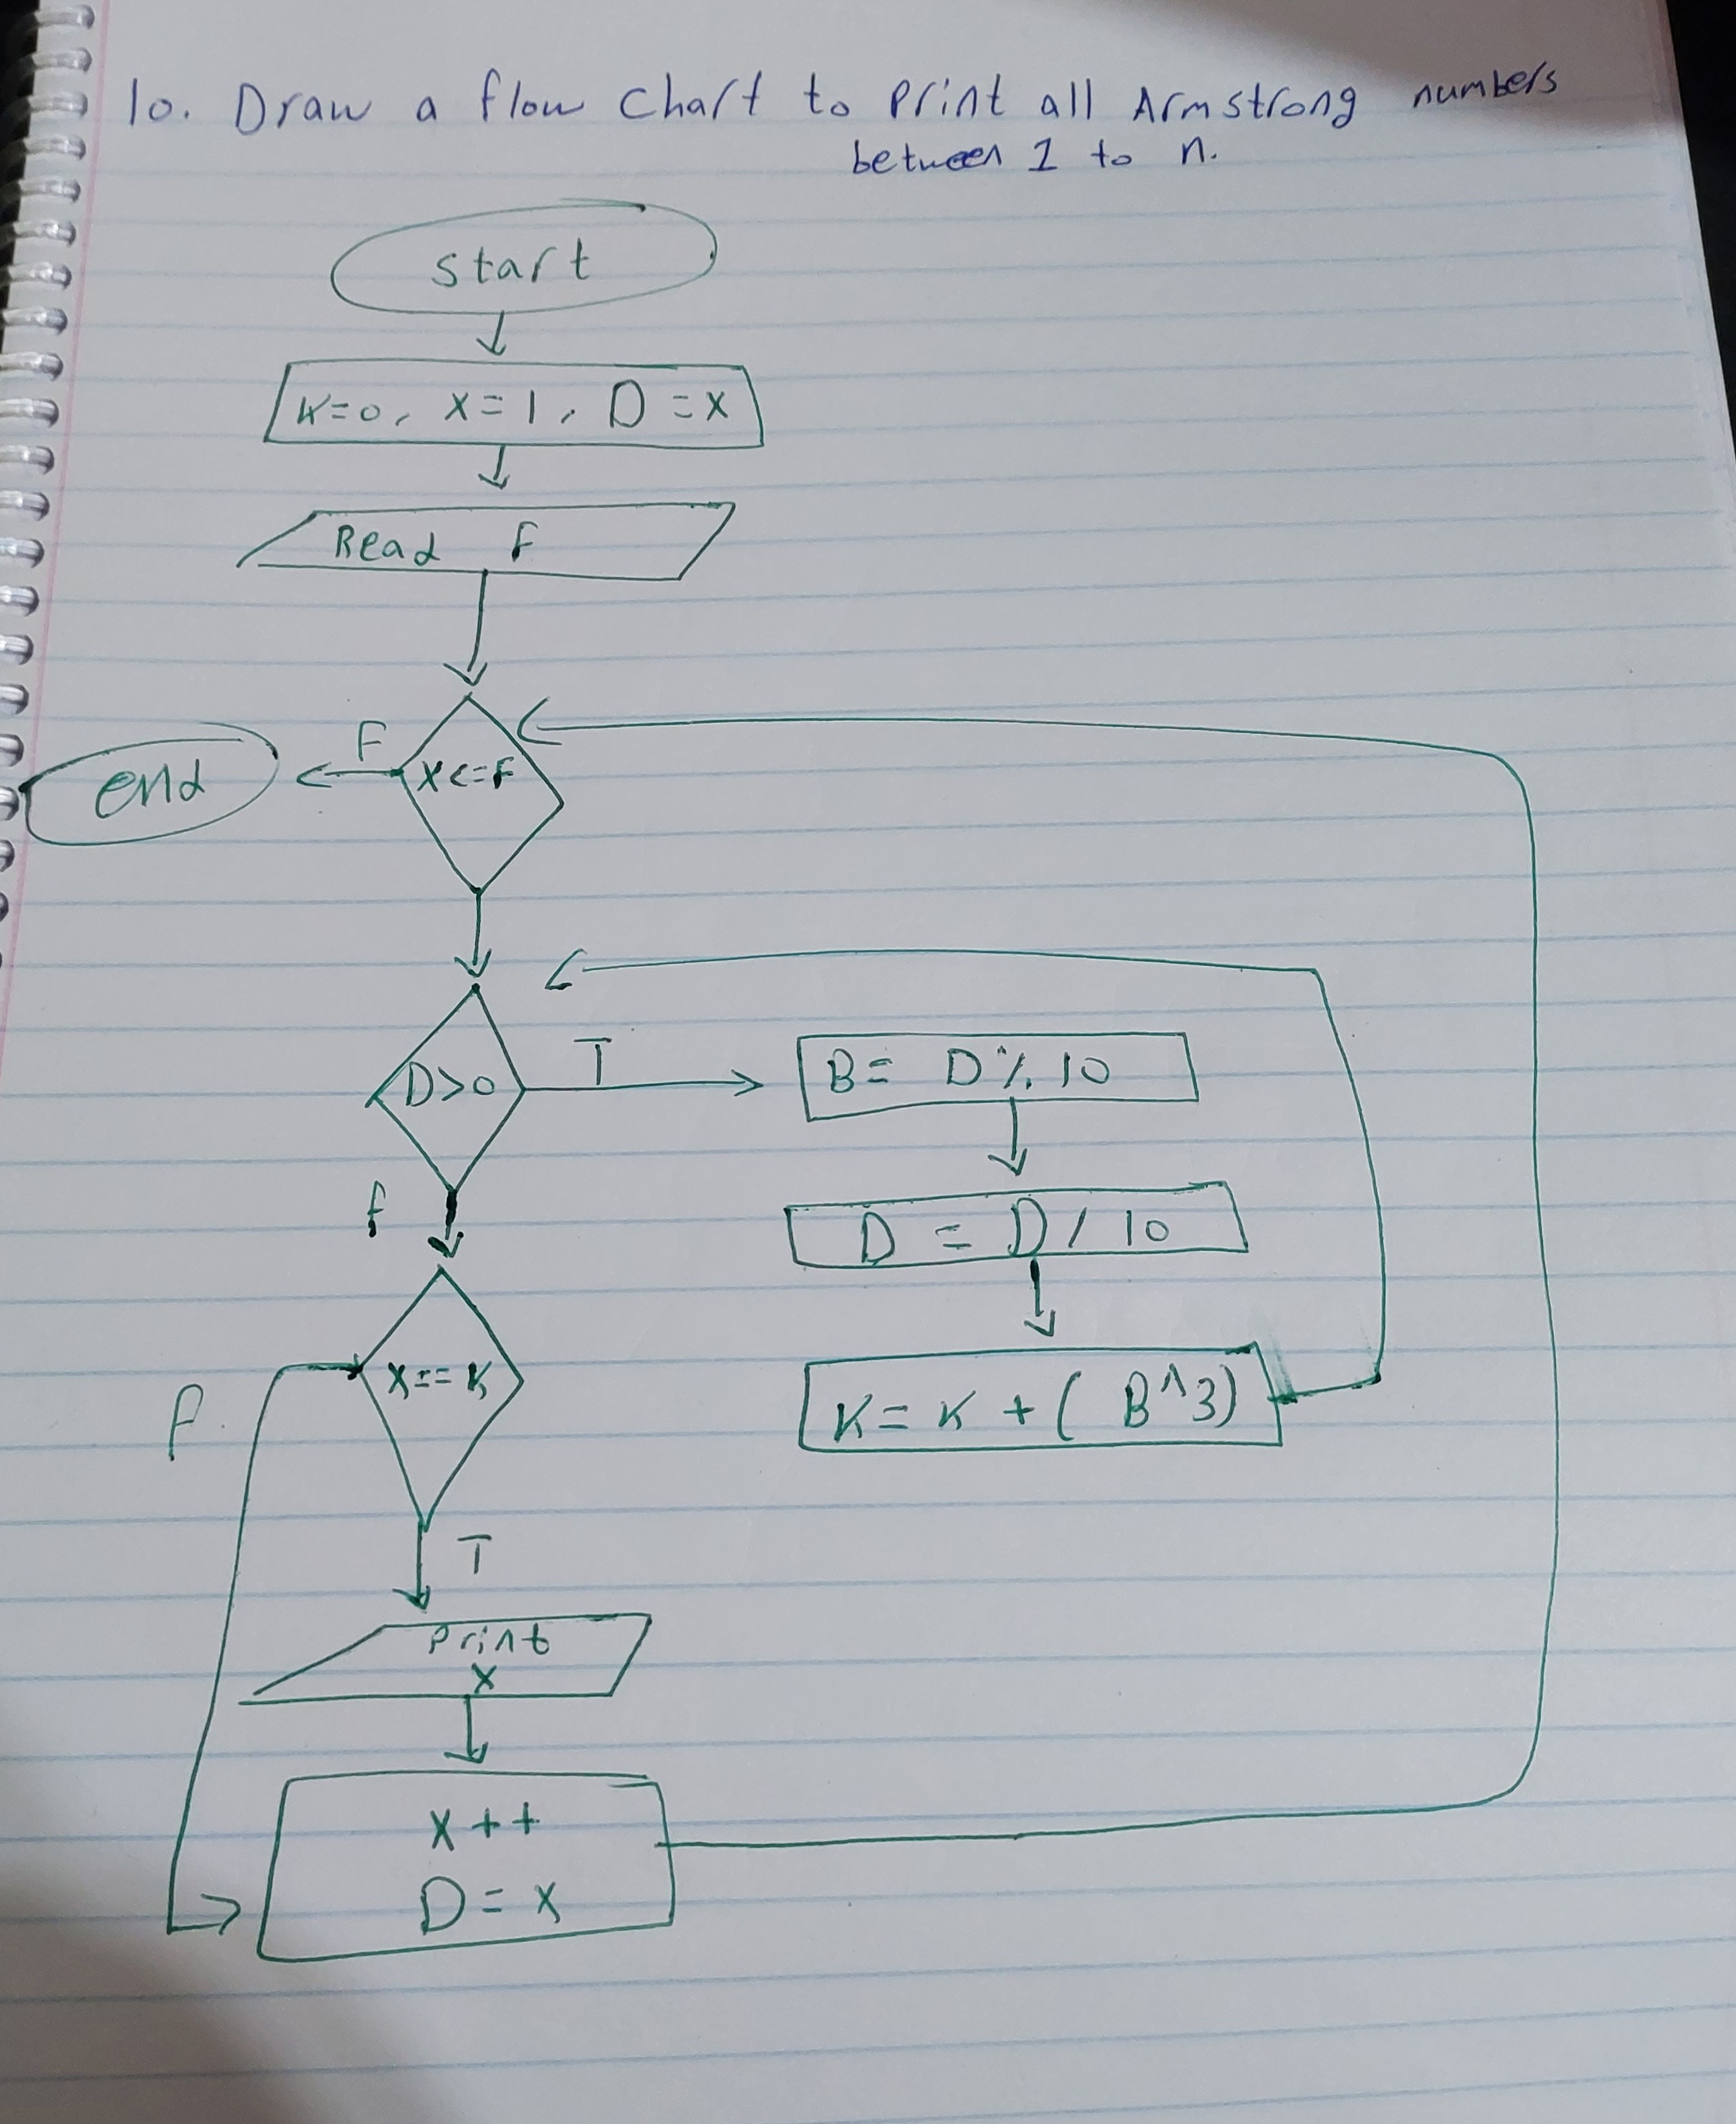 10. Draw a flow chart to print all Armstrong numbers
between 1 to n.
start
K=0, X=1, D=X
Read F
X<=F
F
end
D>0
T
B= D%10
D = D/10
K=K+(B^3)
f
X==K
F
T
Print
X
X++
D=X